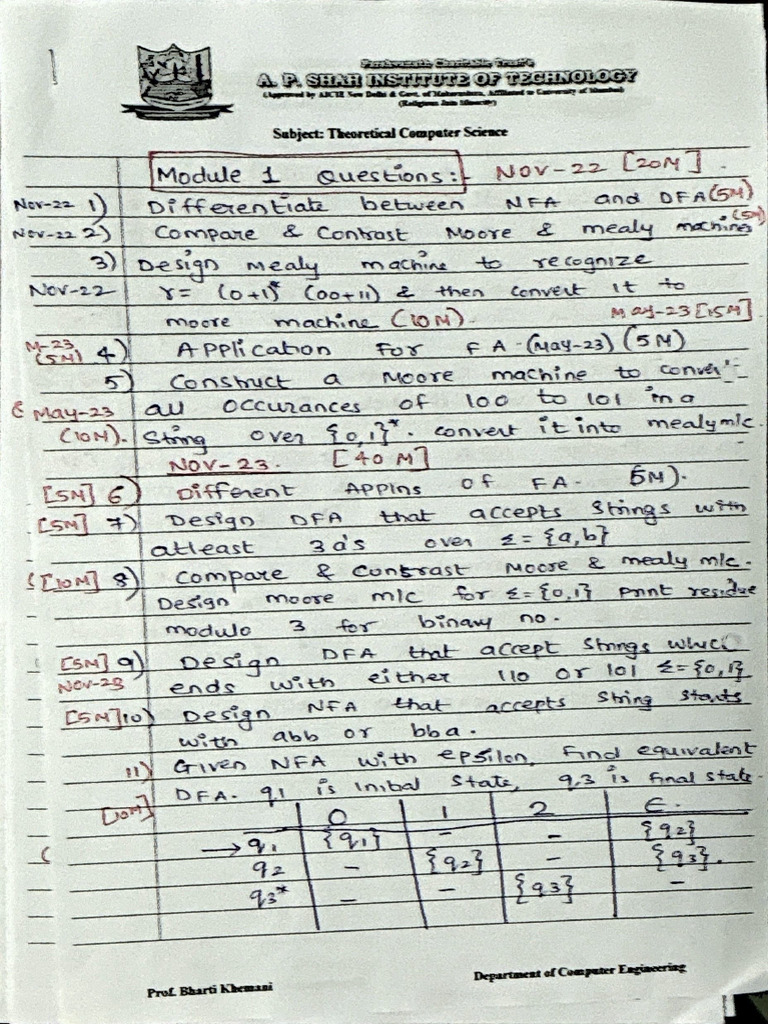 Parshvanath Charitable Trust's
A. P. SHAH INSTITUTE OF TECHNOLOGY
(Approved by AICTE New Delhi & Govt. of Maharashtra, Affiliated to University of Mumbai)
(Religious Jain Minority)
Subject: Theoretical Computer Science
Module 1 Questions:- Nov-22 [20M].
Nov-22 1) Differentiate between NFA and DFA (5M)
Nov-22 2) Compare & Contrast Moore & mealy machines (5M)
3) Design mealy machine to recognize
Nov-22 r= (0+1)* (00+11) & then convert it to
moore machine (10M). May-23 [15M]
M-23 (5M) 4) Application for FA-(May-23) (5M)
5) Construct a Moore machine to conver
May-23 all occurances of 100 to 101 in a
(10M). string over {0,1}*. convert it into mealy m/c.
Nov-23. [40M]
[5M] 6) Different Applns of FA- 5M).
[5M] 7) Design DFA that accepts strings with
atleast 3 a's over Σ={a,b}
[10M] 8) Compare & Contrast Moore & mealy m/c.
Design moore m/c for Σ={0,1} print residue
modulo 3 for binary no.
[5M] 9) Design DFA that accept strings whic
Nov-23 ends with either 110 or 101 Σ={0,1}
[5M] 10) Design NFA that accepts string starts
with abb or bba.
11) Given NFA with epsilon, find equivalent
[10M] DFA. q1 is initial state, q3 is final state.
0 1 2 ε.
→q1 {q1} - - {q2}
q2 - {q2} - {q3}.
q3* - - {q3} -
Prof. Bharti Khemani Department of Computer Engineering